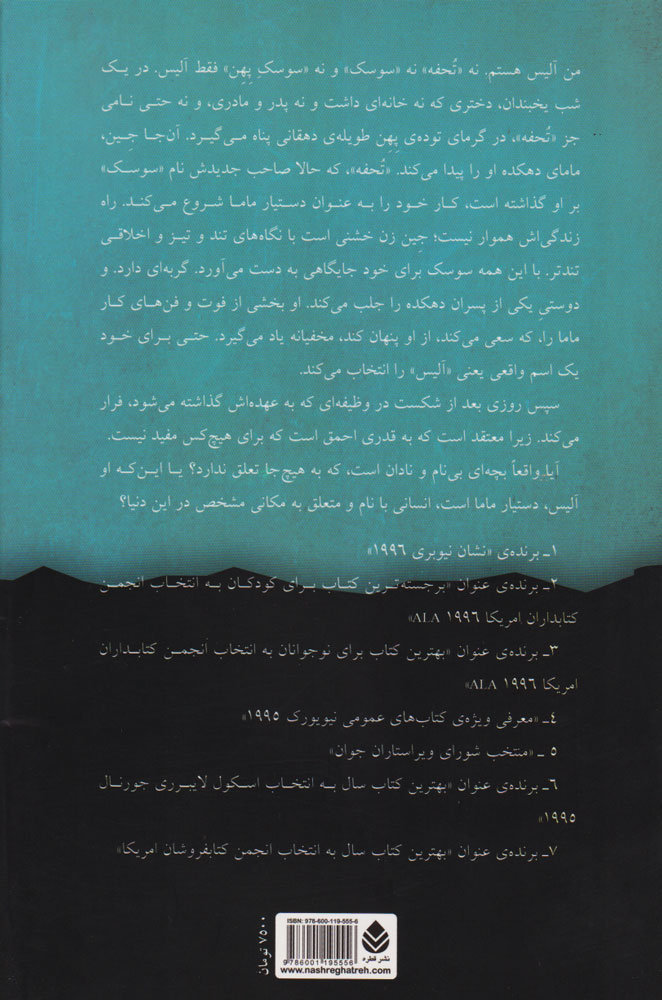 من آلیس هستم. نه «تُحفه» نه «سوسک» و نه «سوسکِ پِهِن» فقط آلیس. در یک
شب یخبندان، دختری که نه خانه‌ای داشت و نه پدر و مادری، و نه حتی نامی
جز «تُحفه»، در گرمای توده‌ی پِهِن طویله‌ی دهقانی پناه می‌گیرد. آن‌جا جِین،
مامای دهکده او را پیدا می‌کند. «تُحفه»، که حالا صاحب جدیدش نام «سوسک»
بر او گذاشته است، کار خود را به عنوان دستیار ماما شروع می‌کند. راه
زندگی‌اش هموار نیست؛ جِین زن خشنی است با نگاه‌های تند و تیز و اخلاقی
تندتر. با این همه سوسک برای خود جایگاهی به دست می‌آورد. گربه‌ای دارد. و
دوستی یکی از پسران دهکده را جلب می‌کند. او بخشی از فوت و فن‌های کار
ماما را، که سعی می‌کند، از او پنهان کند، مخفیانه یاد می‌گیرد. حتی برای خود
یک اسم واقعی یعنی «آلیس» را انتخاب می‌کند.
سپس روزی بعد از شکست در وظیفه‌ای که به عهده‌اش گذاشته می‌شود، فرار
می‌کند. زیرا معتقد است که به قدری احمق است که برای هیچ‌کس مفید نیست.
آیا واقعاً بچه‌ای بی‌نام و نادان است، که به هیچ‌جا تعلق ندارد؟ یا این‌که او
آلیس، دستیار ماما است، انسانی با نام و متعلق به مکانی مشخص در این دنیا؟
۱ـ برنده‌ی «نشان نیوبری ۱۹۹۶»
۲ـ برنده‌ی عنوان «برجسته‌ترین کتاب برای کودکان به انتخاب انجمن
کتابداران امریکا ALA ۱۹۹۶»
۳ـ برنده‌ی عنوان «بهترین کتاب برای نوجوانان به انتخاب انجمن کتابداران
امریکا ALA ۱۹۹۶»
۴ـ «معرفی ویژه‌ی کتاب‌های عمومی نیویورک ۱۹۹۵»
۵ ـ «منتخب شورای ویراستاران جوان»
۶ـ برنده‌ی عنوان «بهترین کتاب سال به انتخاب اسکول لایبرری جورنال
۱۹۹۵»
۷ـ برنده‌ی عنوان «بهترین کتاب سال به انتخاب انجمن کتابفروشان امریکا»
۷۵۰۰ تومان
ISBN: 978-600-119-555-6
9 786001 195556
نشر قطره
www.nashreghatreh.com